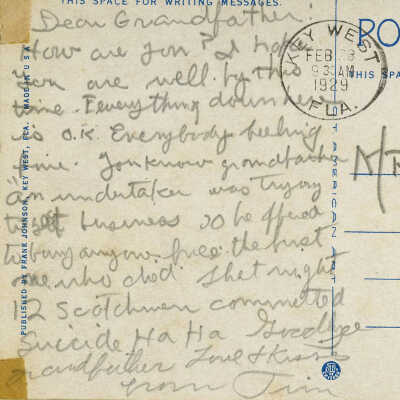 THIS SPACE FOR WRITING MESSAGES.
Dear Grandfather:
How are you? I hope
you are well by this
time. Everything down here
is O.K. Everybody feeling
fine. You know grandfather
an undertaker was trying
to get business so he offered
to bury anyone free the first
one who died. That night
12 Scotchmen committed
Suicide Ha Ha Goodbye
grandfather Love & Kisses
from Jim
KEY WEST
FEB 28
9 30 AM
1929
FLA.
PO
THIS SPA
PUBLISHED BY FRANK JOHNSON, KEY WEST, FLA.
MADE IN U.S.A.